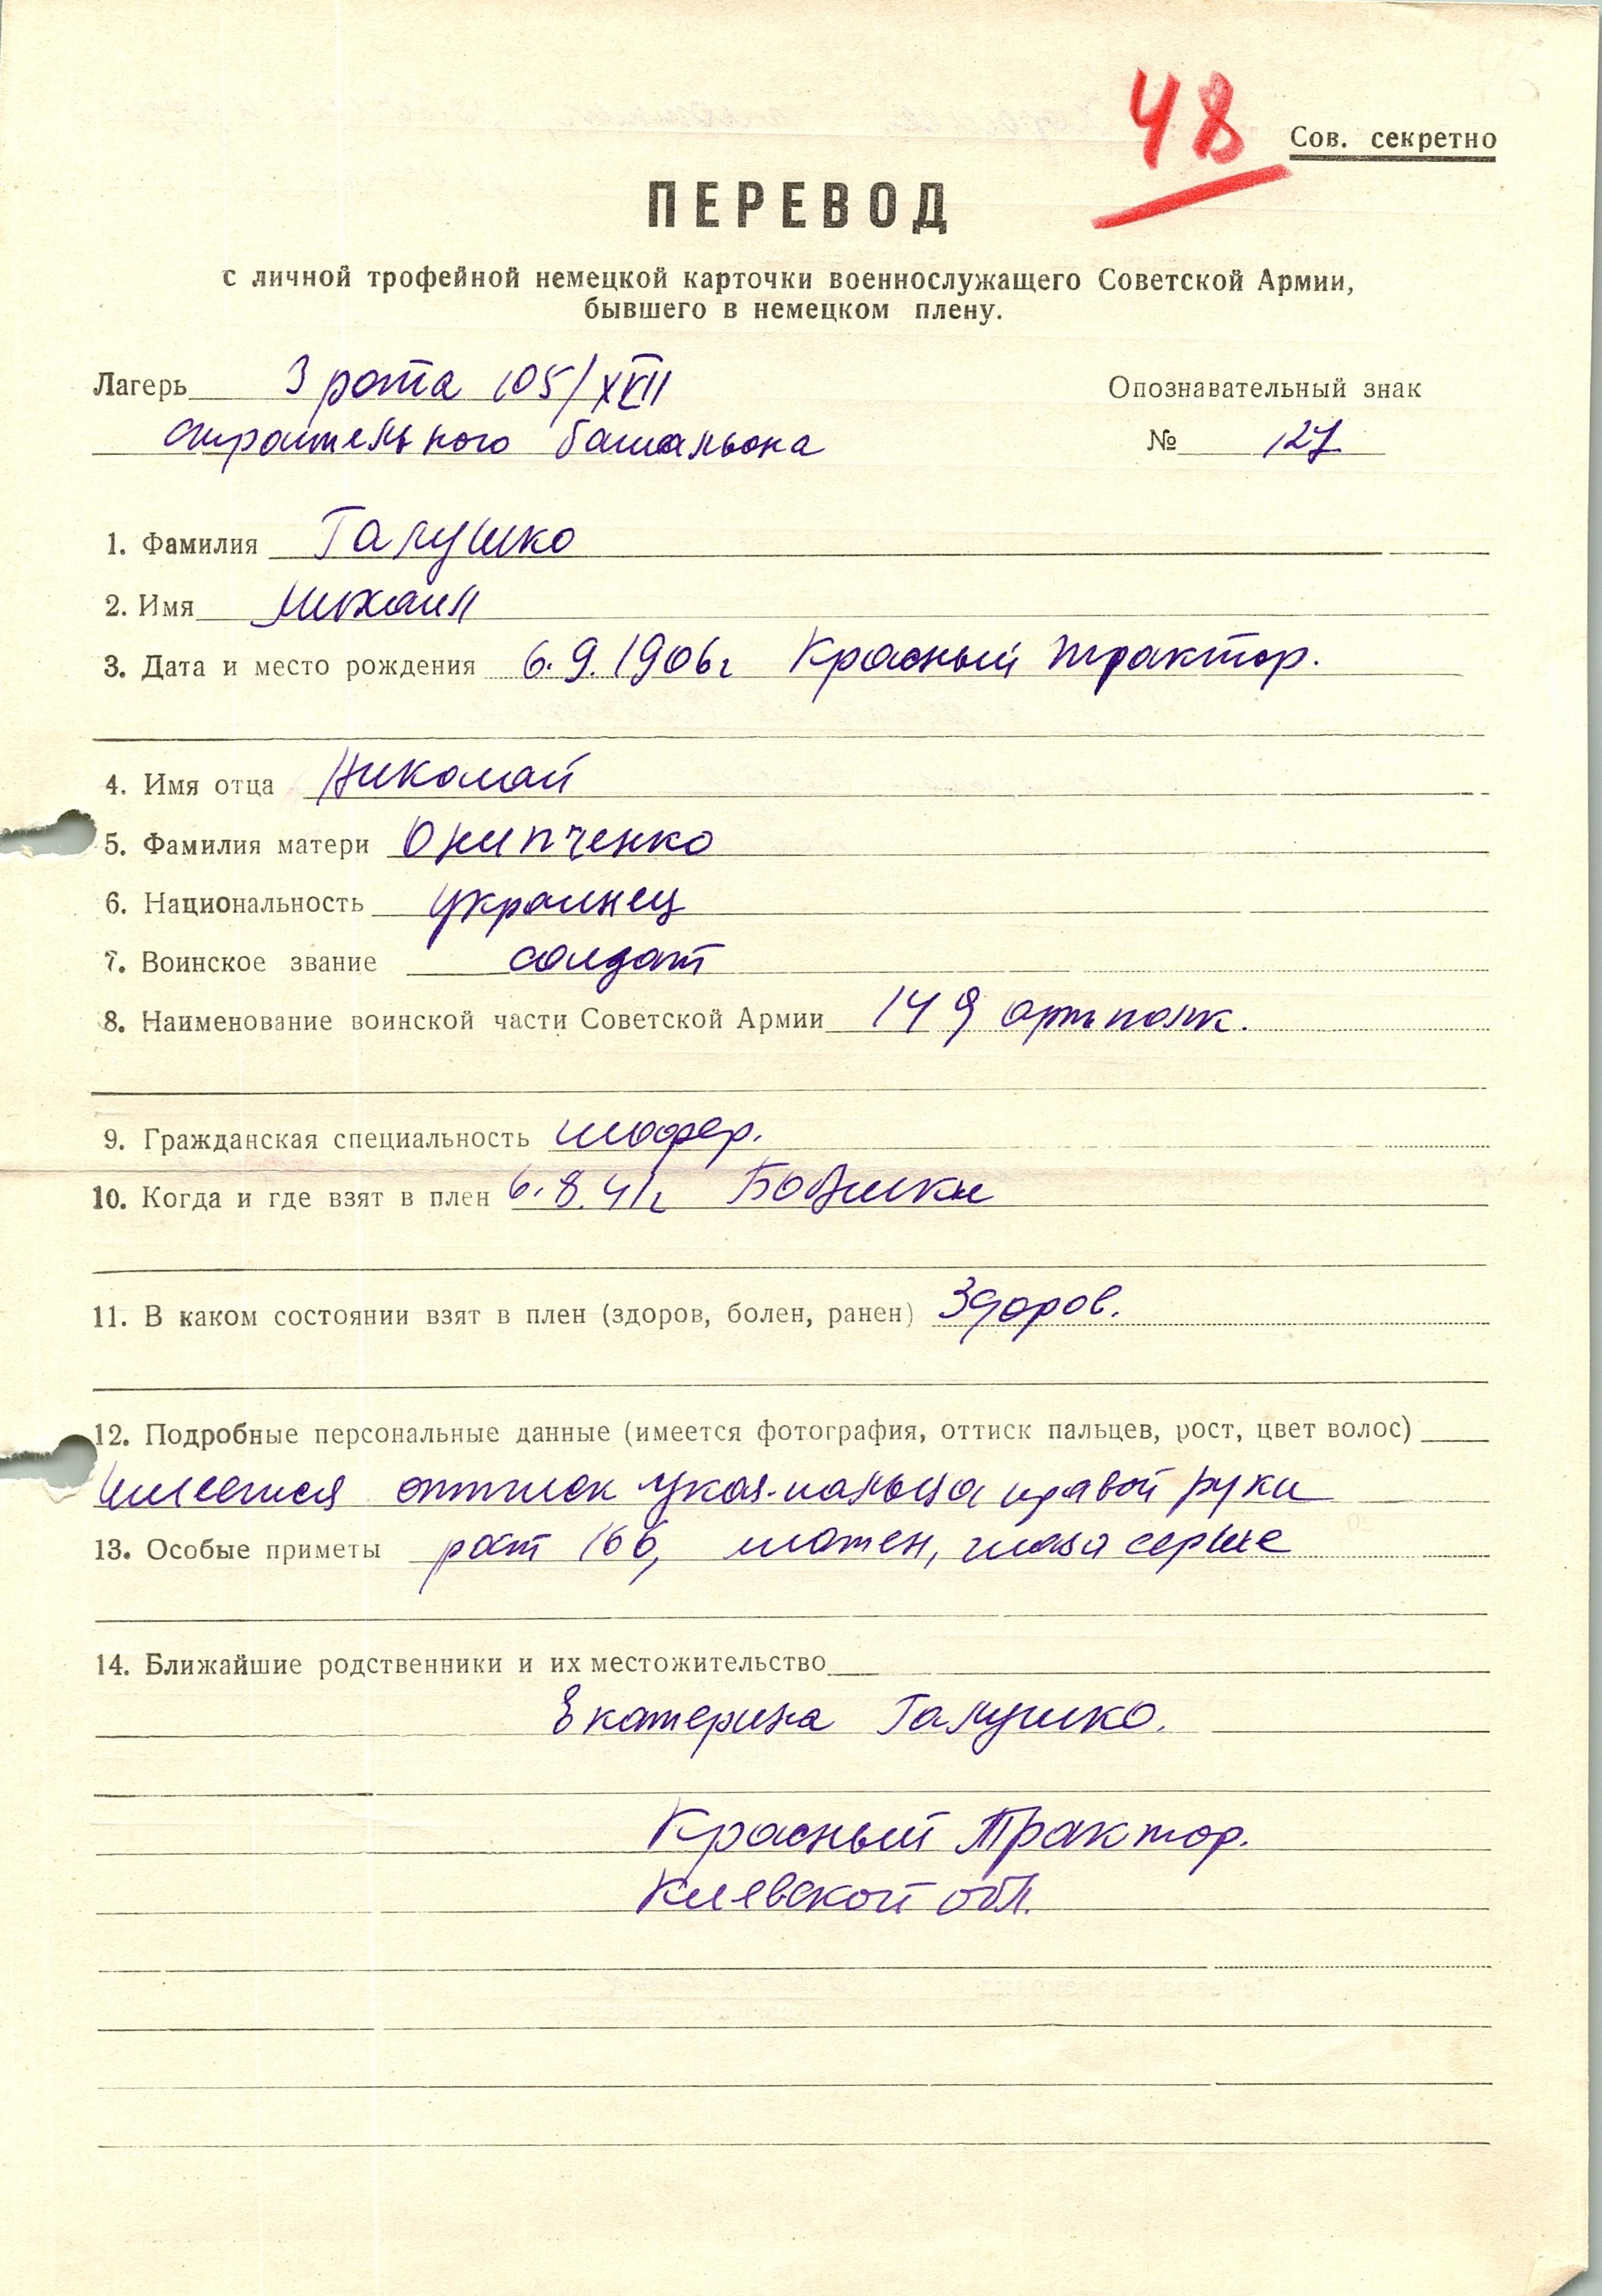 48
Сов. секретно
ПЕРЕВОД
с личной трофейной немецкой карточки военнослужащего Советской Армии,
бывшего в немецком плену.
Лагерь 3 рота 105/XVII
строительного батальона
Опознавательный знак
№ 127
1. Фамилия Галушко
2. Имя Михаил
3. Дата и место рождения 6.9.1906г Красный трактор.
4. Имя отца Николай
5. Фамилия матери Онипченко
6. Национальность украинец
7. Воинское звание солдат
8. Наименование воинской части Советской Армии 149 артполк.
9. Гражданская специальность шофер.
10. Когда и где взят в плен 6.8.41г
11. В каком состоянии взят в плен (здоров, болен, ранен) Здоров.
12. Подробные персональные данные (имеется фотография, оттиск пальцев, рост, цвет волос)
имеется оттиск указ. пальца правой руки
13. Особые приметы рост 166, глаза серые
14. Ближайшие родственники и их местожительство
Екатерина Галушко.
Красный Трактор.
Киевской обл.